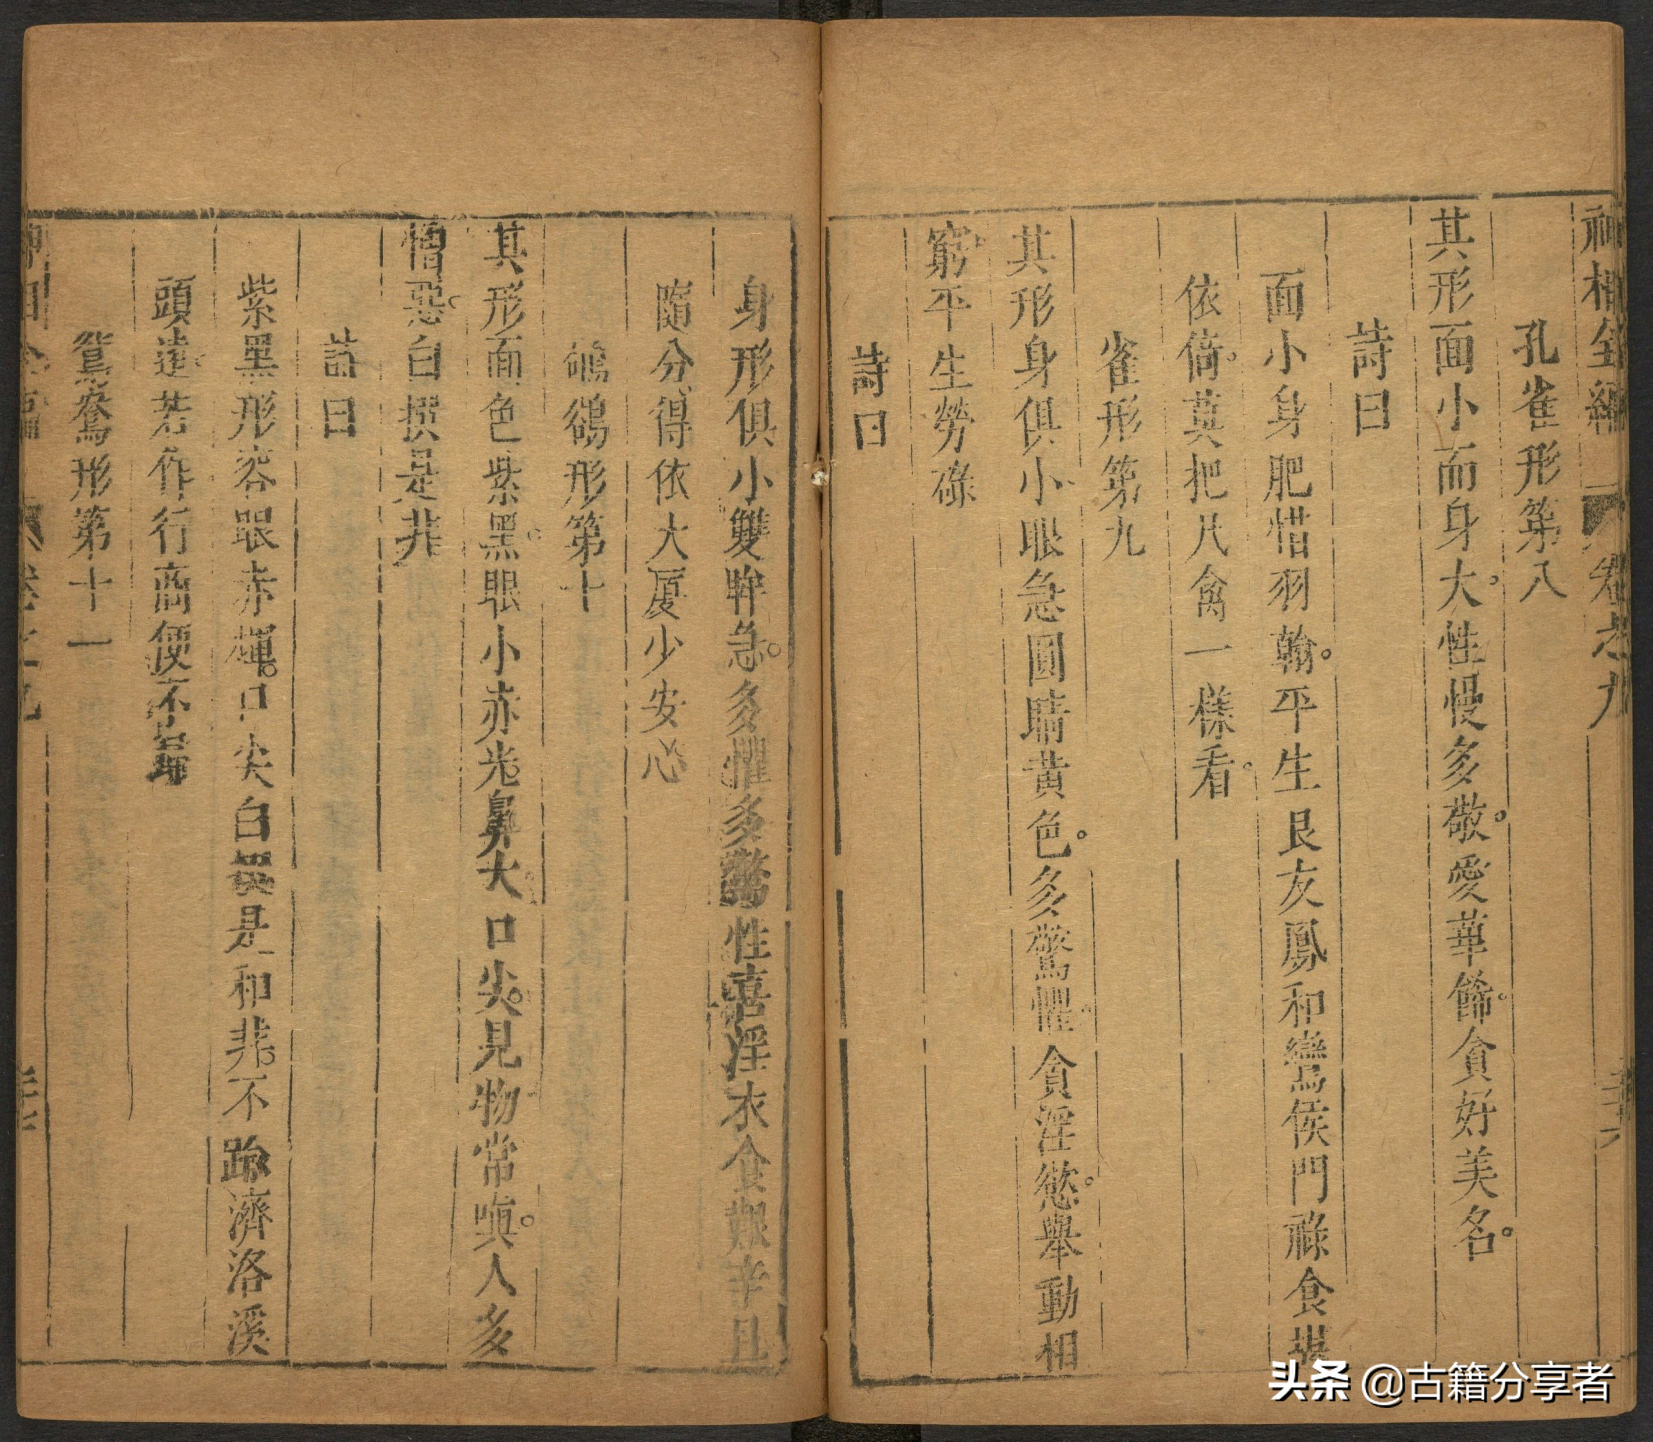 神相全編 卷之九
孔雀形第八
其形面小而身大性慢多敬愛華飾貪好美名
詩曰
面小身肥惜羽翰平生良友鳳和鸞侯門祿食堪
依倚莫把凡禽一樣看
雀形第九
其形身俱小眼急圓睛黃色多驚懼貪淫慾舉動相
窮平生勞碌
詩曰
身形俱小雙眸急多懼多驚性喜淫衣食艱辛且
隨分得依大厦少安心
形第十
其形面色紫黑眼小赤光鼻大口尖見物常嗔人多
憎惡白撰是非
詩曰
紫黑形容眼赤輝口尖白撰是和非不踰濟洛溪
頭遠若作行商便不歸
鴛鴦形第十一
头条 @古籍分享者